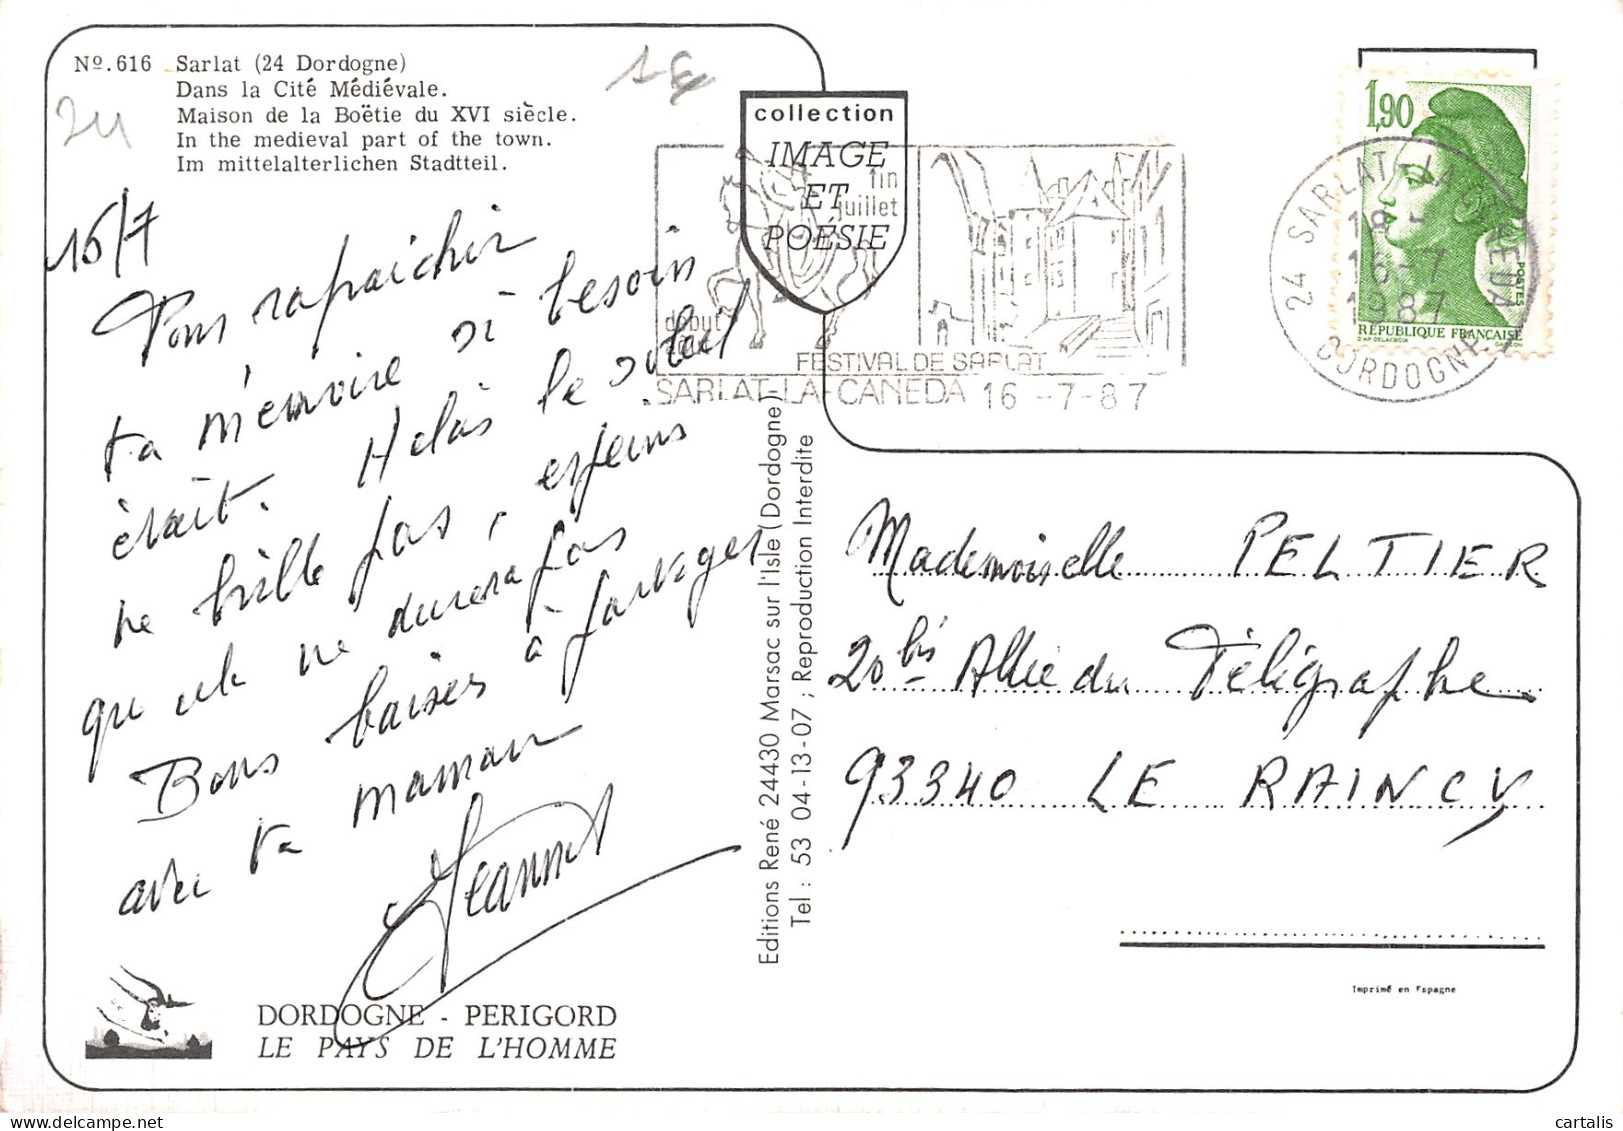 Nº.616 Sarlat (24 Dordogne)
Dans la Cité Médiévale.
Maison de la Boëtie du XVI siècle.
In the medieval part of the town.
Im mittelalterlichen Stadtteil.
24
1 €
collection
IMAGE
ET
POÉSIE
fin
juillet
début
FESTIVAL DE SARLAT
SARLAT-LA-CANEDA 16-7-87
1,90
POSTES
RÉPUBLIQUE FRANÇAISE
D'AP DELACROIX GANDON
24 SARLAT-LA-CANEDA
18 -
16-7
1987
DORDOGNE
16/7
Pour rafraichir
ta mémoire si besoin
était. Hélas le soleil
ne brille pas, espérons
que cela ne durera pas
Bons baisers à partager
avec ta maman
Jeannot
Editions René 24430 Marsac sur l'Isle (Dordogne)
Tel : 53 04-13-07 ; Reproduction Interdite
Mademoiselle PELTIER
20 bis Allée du Télégraphe
93340 LE RAINCY
Imprimé en Espagne
DORDOGNE - PERIGORD
LE PAYS DE L'HOMME
cartalis